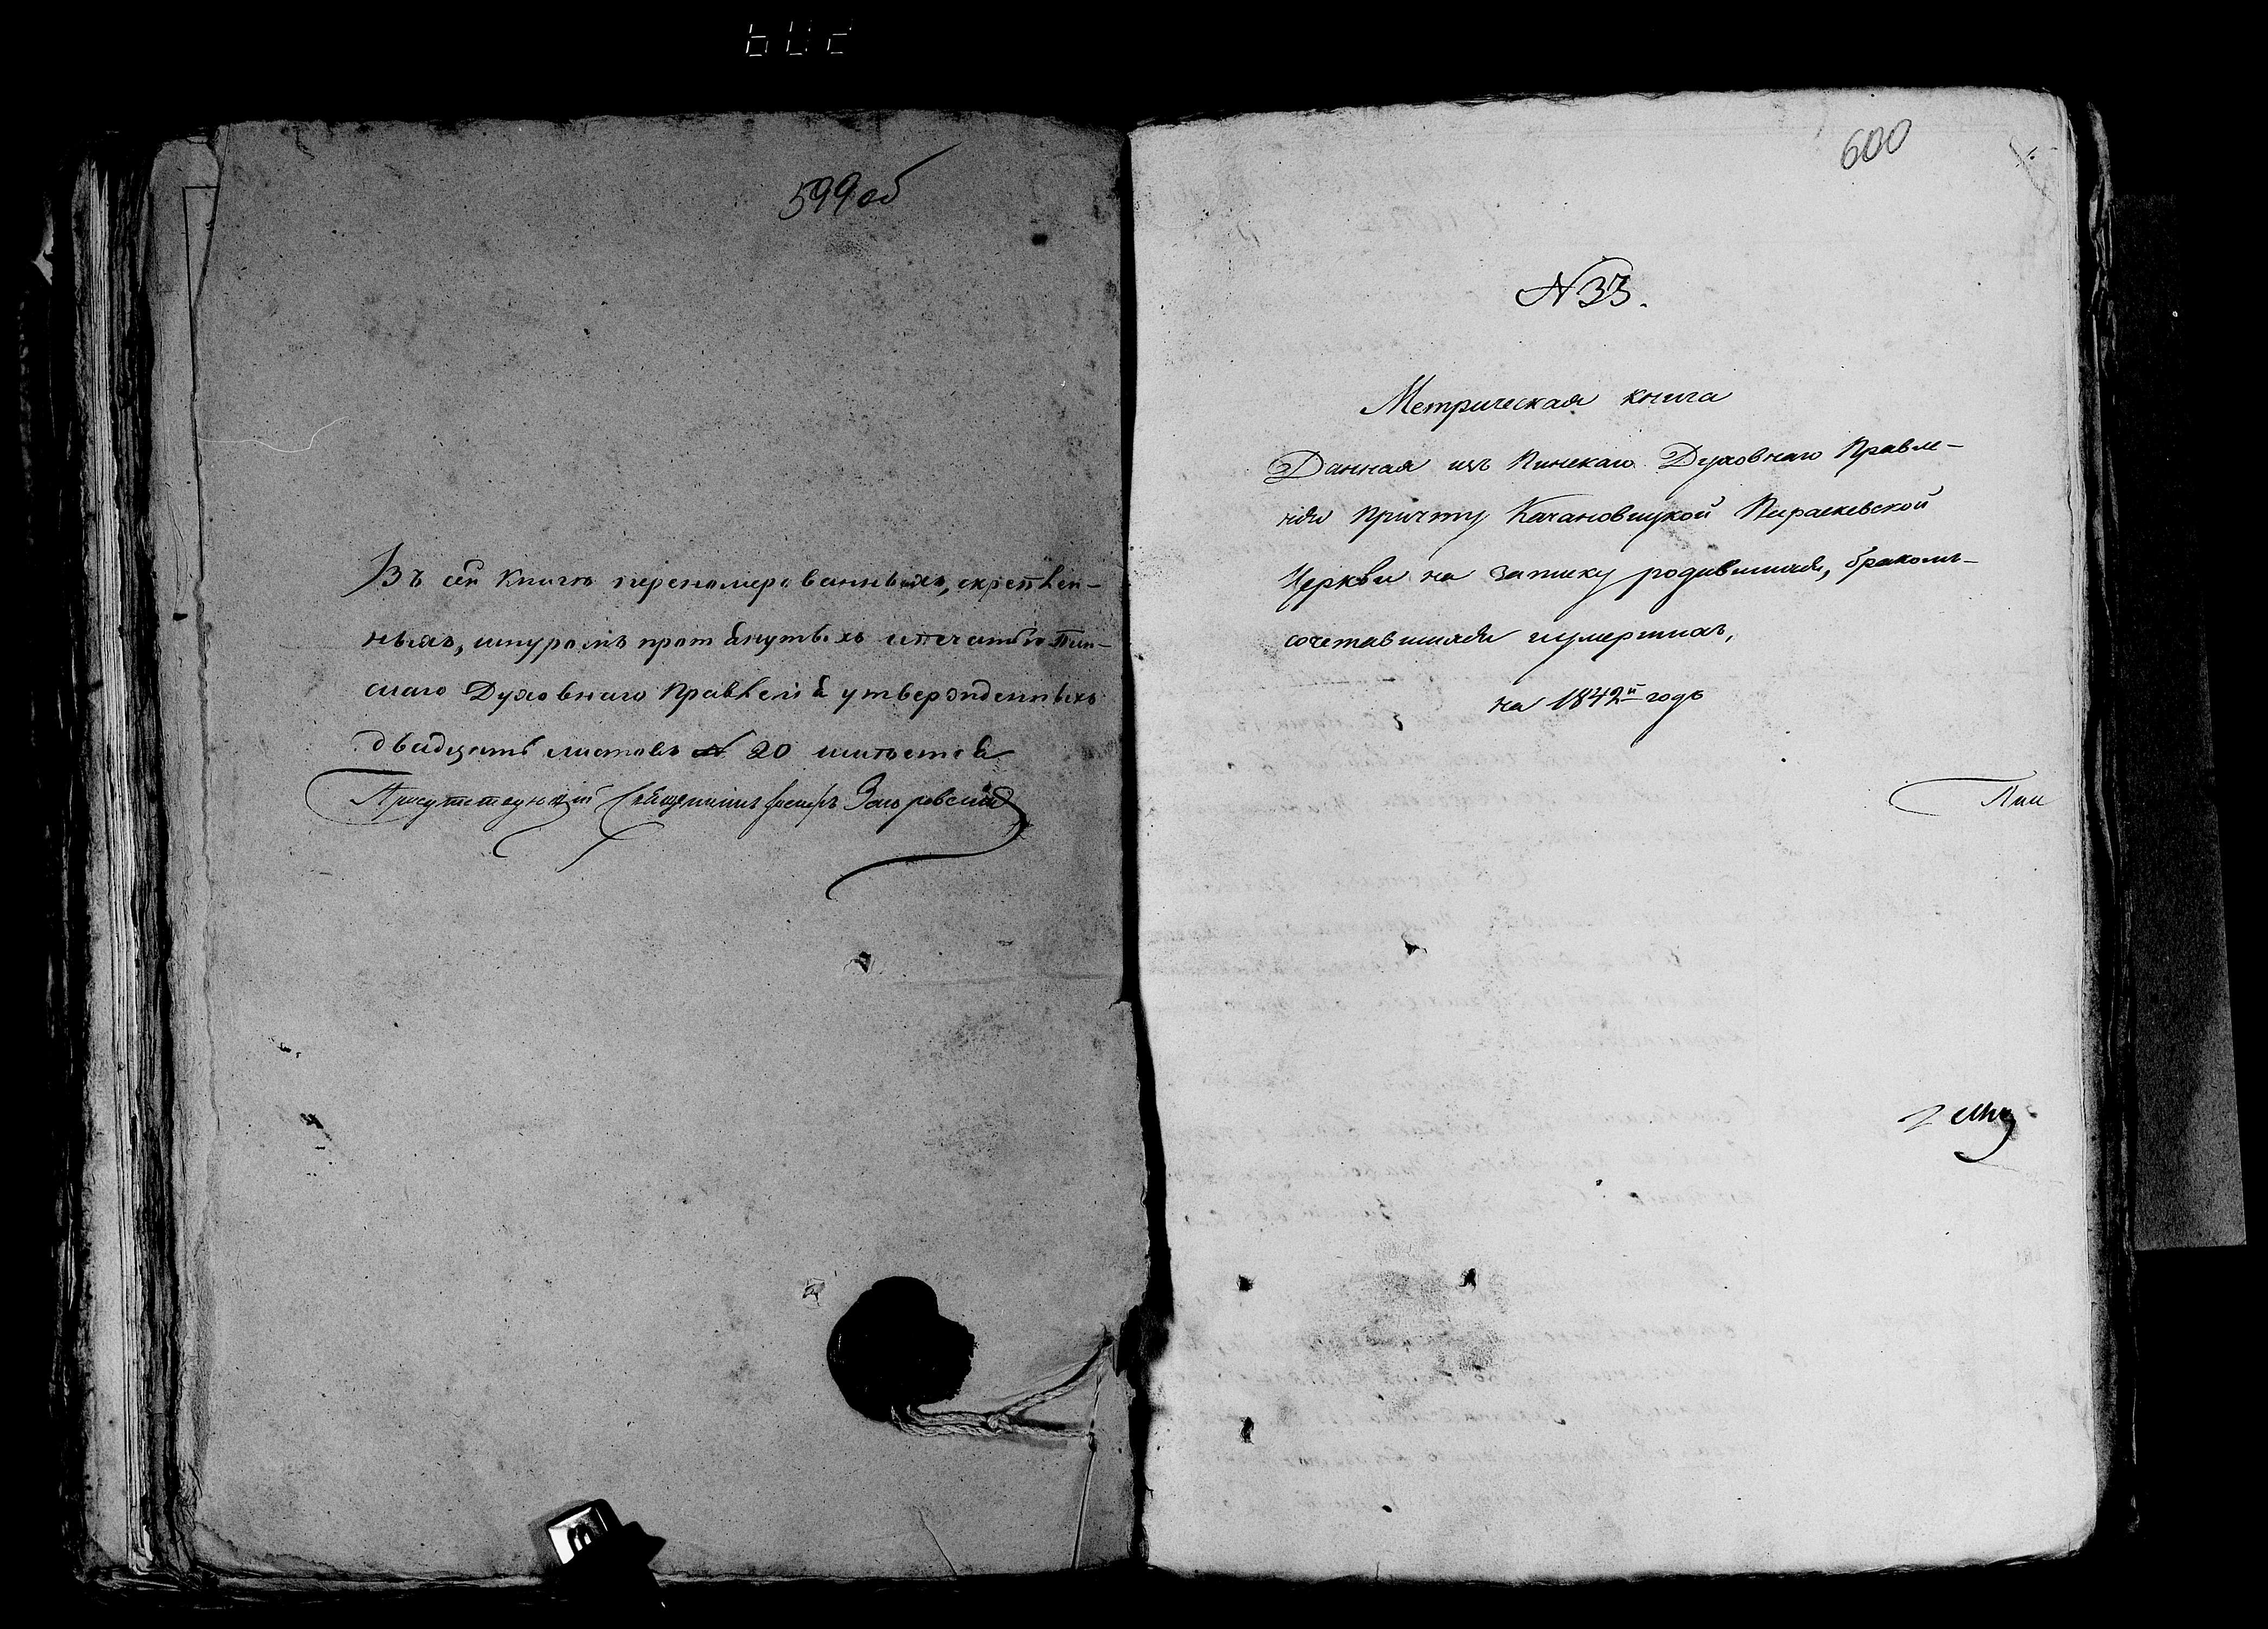 602
599 об
Въ сей Книгѣ переномерованныхъ, скрѣплен-
ныхъ, шнуромъ протянутыхъ и печатью Пин-
скаго Духовнаго Правленія утвержденныхъ
двадцать листовъ № 20 имѣется
Присутствующій Священникъ Загоровскій
600
N 33.
Метрическая книга
Данная изъ Пинскаго Духовнаго Правле-
нія Причту Качановицкой Параскевской
Церкви на записку родившихся, браком-
сочетавшихся и умершихъ,
на 1842й годъ
Пин